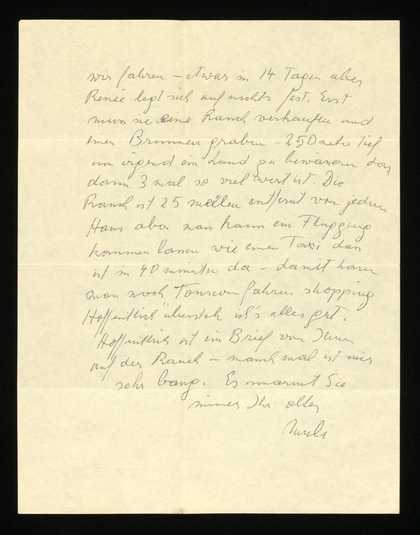 wir fahren – etwas in 14 Tagen aber
Renée legt sich auf nichts fest. Erst
muss sie eine Ranch verkaufen und
einen Brunnen graben – 250 metre tief
um irgend ein Land zu bewässern das
dann 3 mal so viel wert ist. Die
Ranch ist 25 meilen entfernt von jedem
Haus aber man kann ein Flugzeug
kommen lassen wie einen Taxi das
ist in 40 minuten da – damit kann
man nach fahren, shopping
Hoffentlich ist's alles gut.
Hoffentlich ist ein Brief von Ihnen
auf der Ranch – manchmal ist mir
sehr bang. Es umarmt Sie
immer Ihr alter